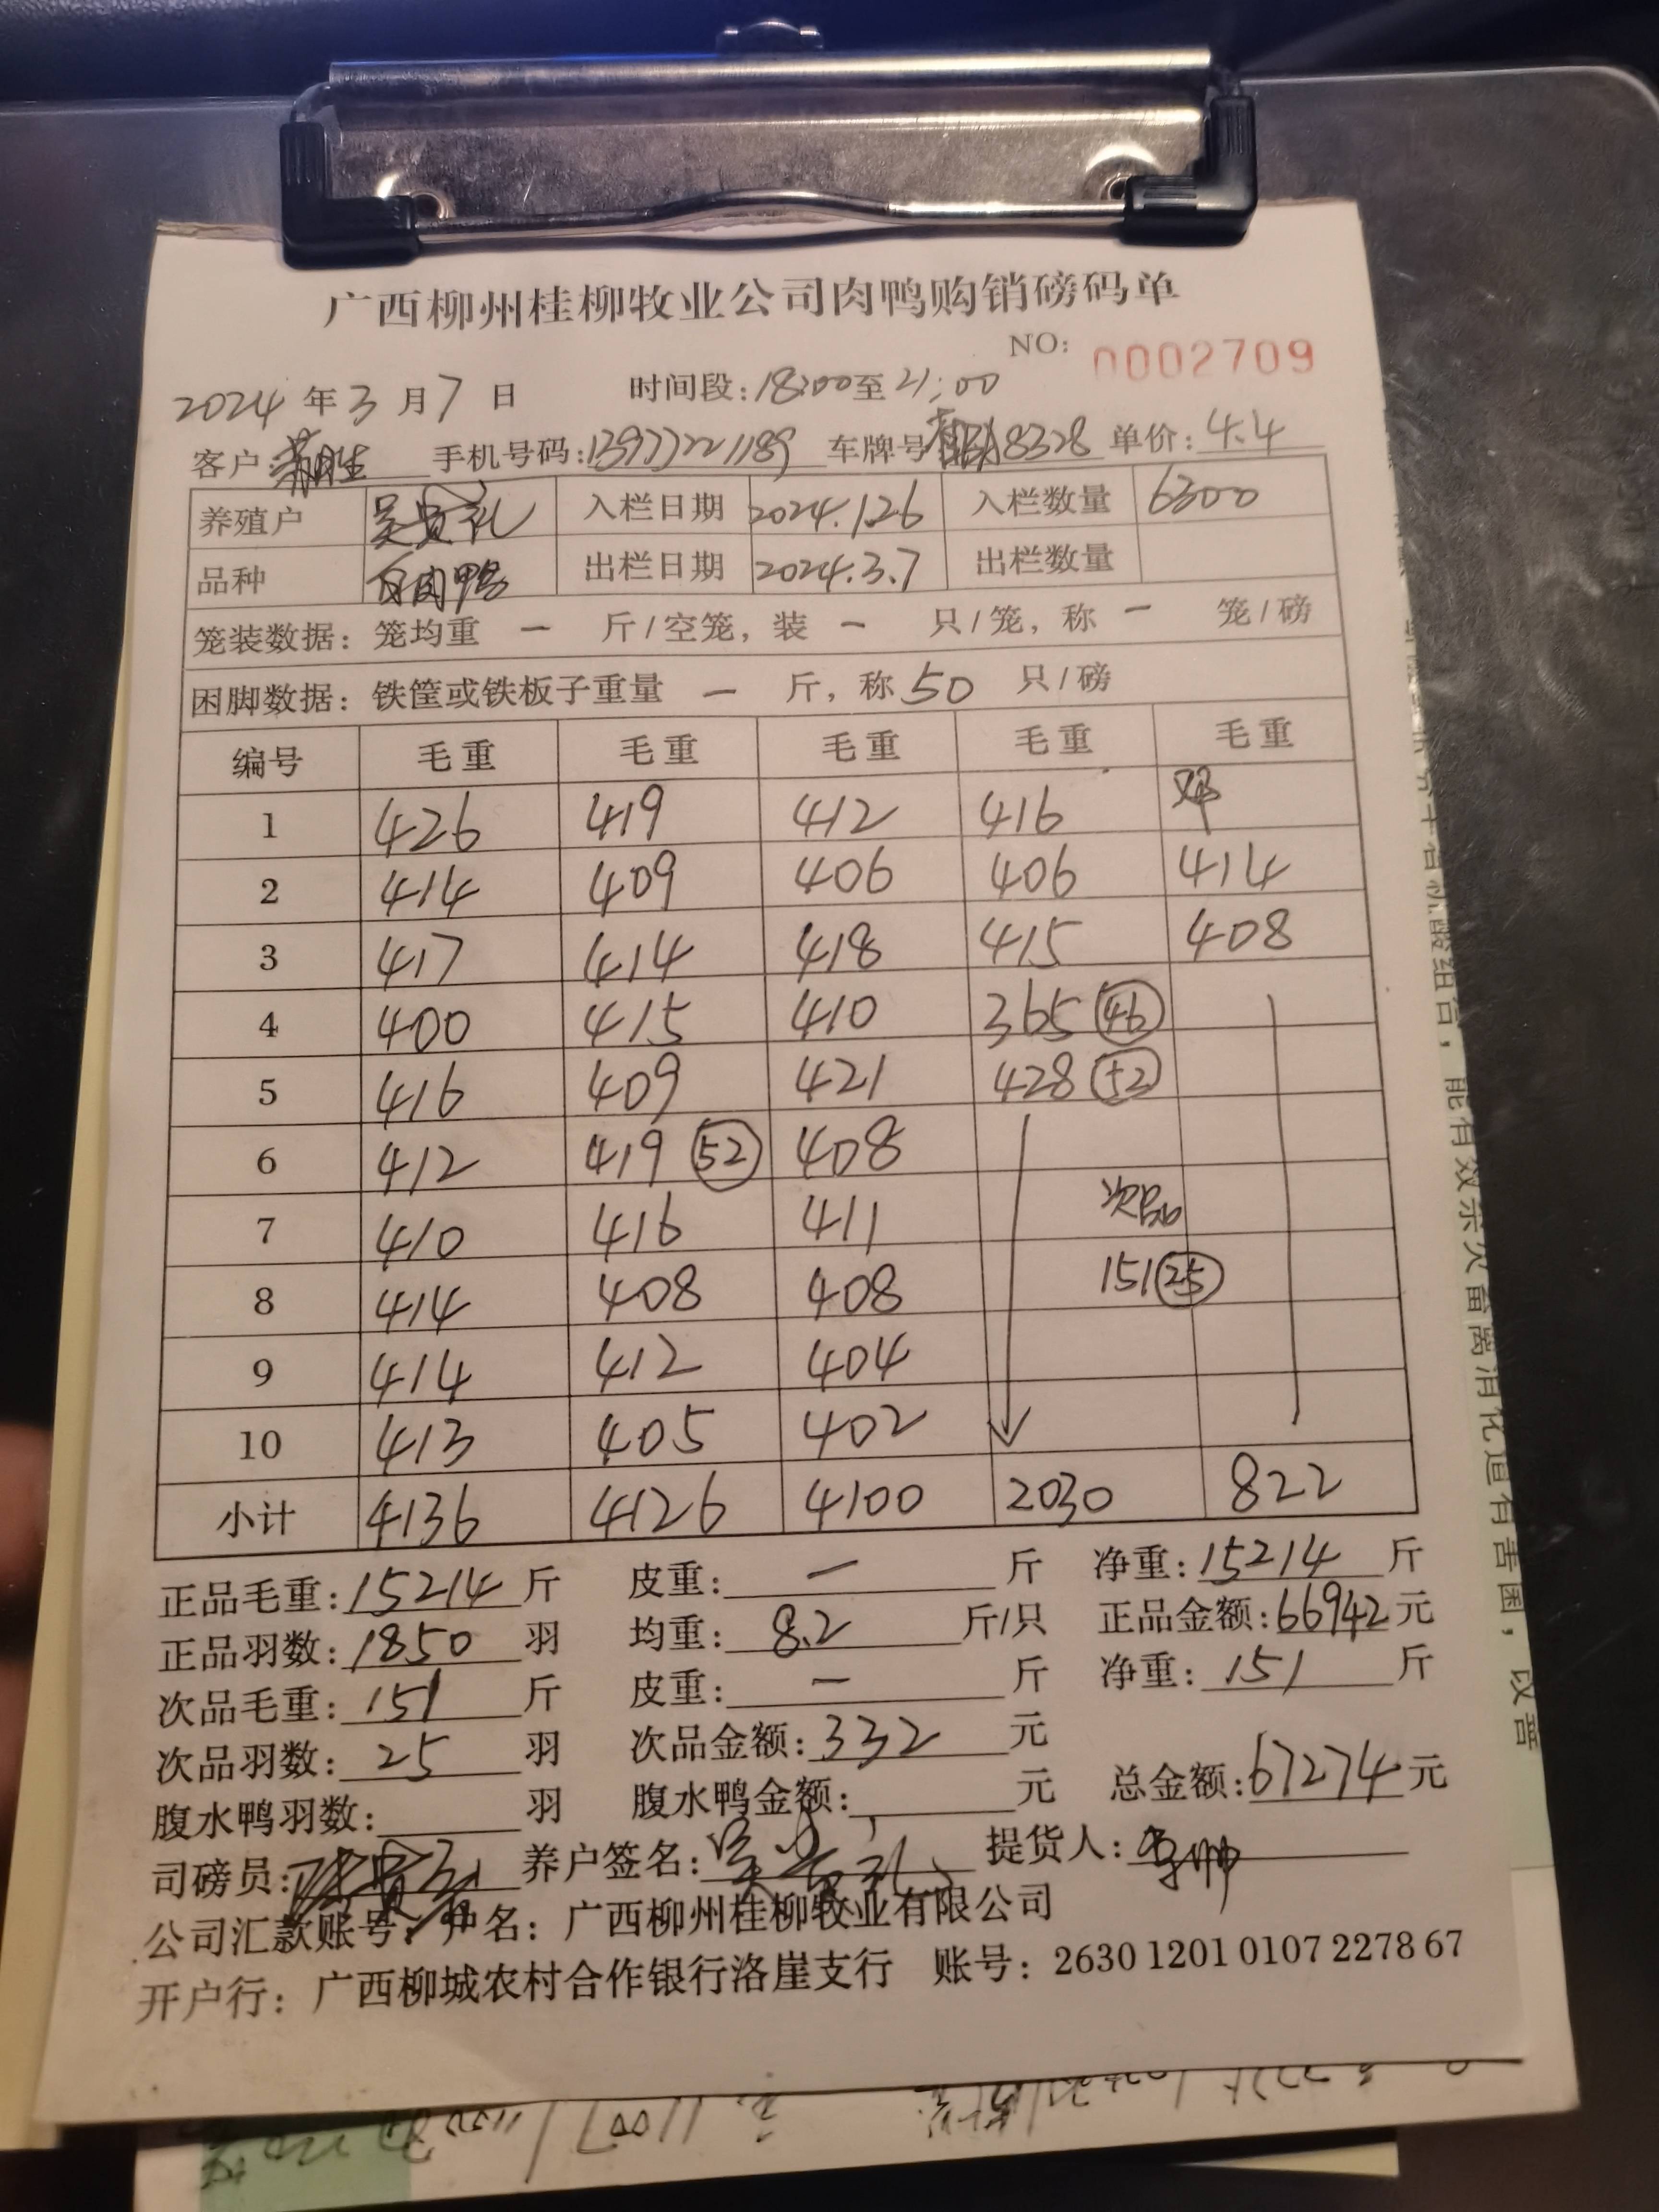 广西柳州桂柳牧业公司肉鸭购销磅码单
NO: 0002709
2024 年 3 月 7 日 时间段: 18:00 至 21:00
客户: 手机号码: 13977221189 车牌号 8328 单价: 4.4
养殖户 吴贵礼 入栏日期 2024.1.26 入栏数量 6300
品种 白肉鸭 出栏日期 2024.3.7 出栏数量
笼装数据: 笼均重 一 斤/空笼, 装 一 只/笼, 称 一 笼/磅
困脚数据: 铁筐或铁板子重量 一 斤, 称 50 只/磅
编号 毛重 毛重 毛重 毛重 毛重
1 426 419 412 416
2 414 409 406 406 414
3 417 414 418 415 408
4 400 415 410 365 46
5 416 409 421 428 52
6 412 419 52 408
7 410 416 411 次品
8 414 408 408 151 25
9 414 412 404
10 413 405 402
小计 4136 4126 4100 2030 822
正品毛重: 15214 斤 皮重: 一 斤 净重: 15214 斤
正品羽数: 1850 羽 均重: 8.2 斤/只 正品金额: 66942 元
次品毛重: 151 斤 皮重: 一 斤 净重: 151 斤
次品羽数: 25 羽 次品金额: 332 元
腹水鸭羽数: 羽 腹水鸭金额: 元 总金额: 67274 元
司磅员: 养户签名: 吴贵礼 提货人:
公司汇款账号: 户名: 广西柳州桂柳牧业有限公司
开户行: 广西柳城农村合作银行洛崖支行 账号: 2630 1201 0107 2278 67